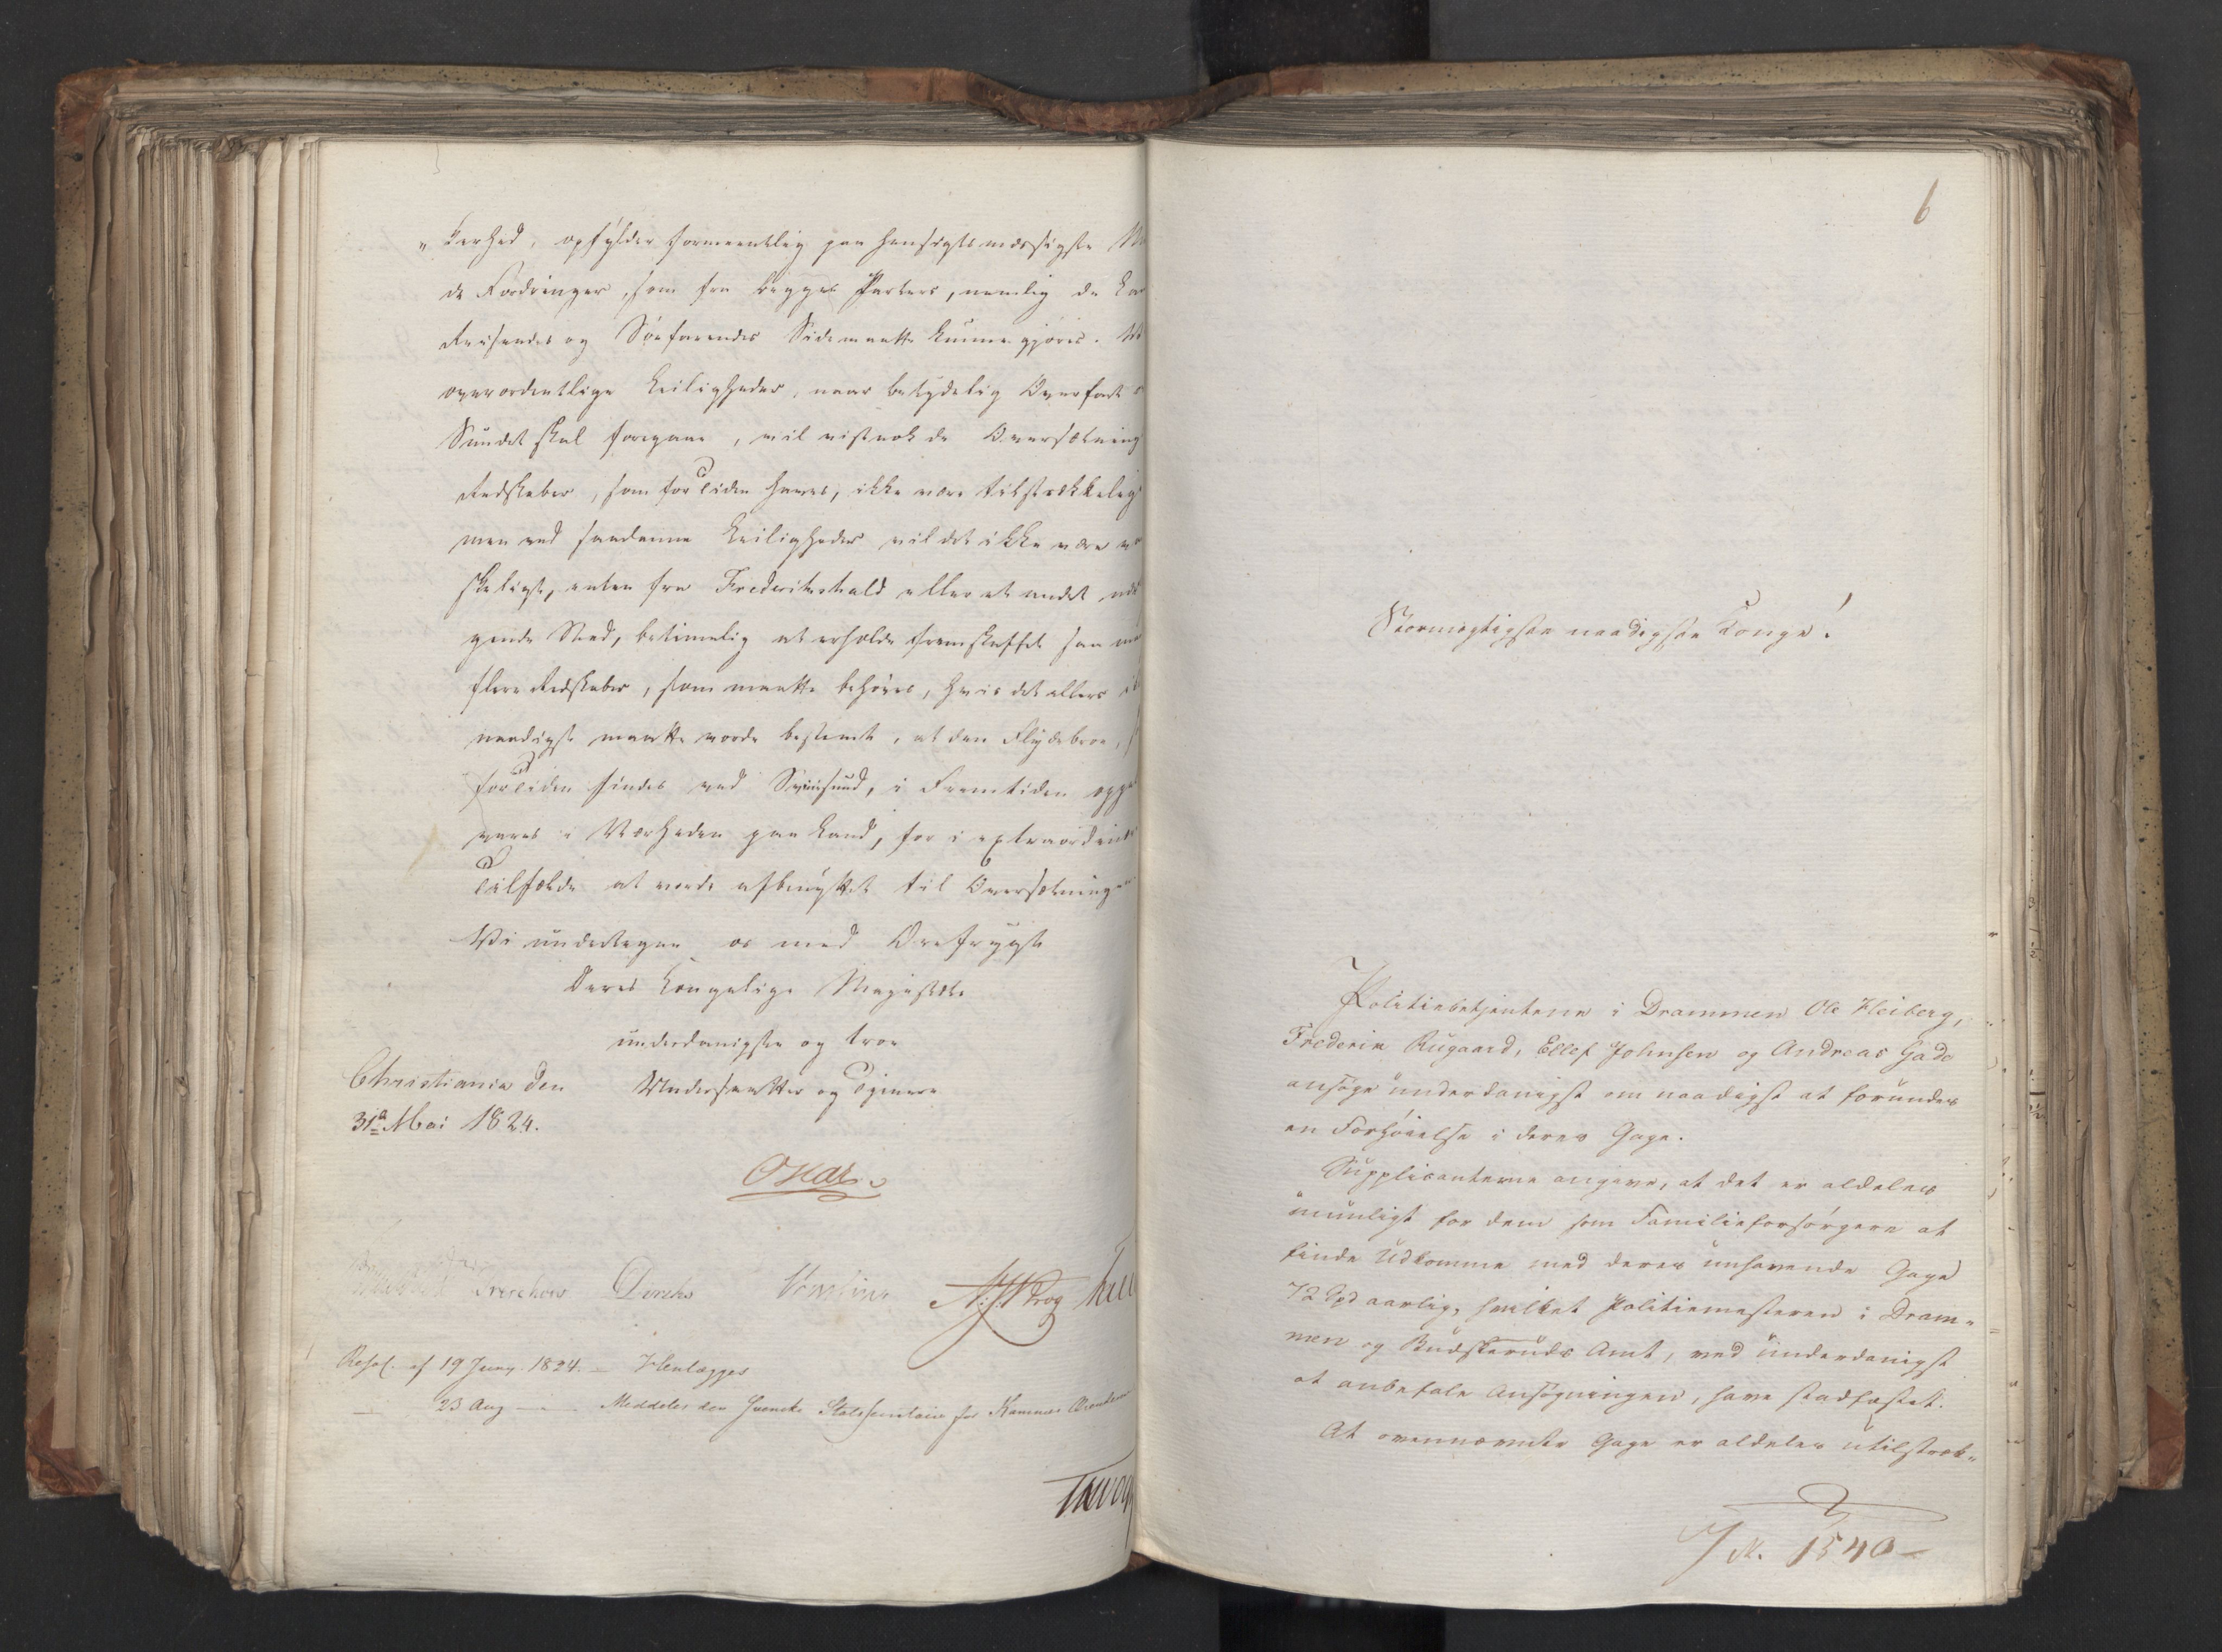 „kerhed, opfylder formeentlig paa hensigtsmæssigste
de Fordringer, som fra begge Parters, nemlig de
Reisendes og Søefarendes Side maatte kunne gjøres.
overordentlige Leiligheder, naar betydelig Overfart
Sundet skal foregaae, vil vistnok de Oversætnings
Redskaber, som for Tiden haves, ikke være tilstrækkelig
men ved saadanne Leiligheder vil det ikke være
skeligt, enten fra Frederikshald eller et andet
gende Sted, betimelig at erholde fremskaffet saa
flere Redskaber, som maatte behøves, hvis det ellers
naadigst maatte vorde bestemt, at den Flydebroe,
for Tiden findes ved Sviinsund, i Fremtiden
vares i Værheden paa Land, for i extraordinaire
Tilfælde at vorde afbenyttet til Oversætningen
Vi undertegne os med Ærefrygt
Deres Kongelige Majestæts
underdanigste og troe
Christiania den Undersaatter og Tjenere
31d Mai 1824.
Oscar
Treschow Diriks Vi. Krog
Resol. af 19 Juny 1824. – Henlægges
— 23 Aug — Meddeles den Svenske Statssecretaire for Kammer
6
Stormægtigste naadigste Konge!
Politiebetjentene i Drammen Ole Heiberg,
Frederik Rugaard, Ellef Johnsen og Andreas Gade
ansøge underdanigst om naadigst at forundes
en Forhøielse i deres Gage.
Supplicanterne angive, at det er aldeles
umuligt for dem som Familieforsørgere at
finde Udkomme med deres unhavende Gage
72 Spd aarlig, hvilket Politiemesteren i Dram-
men og Budskeruds Amt, ved underdanigst
at anbefale Ansøgningen, have stadfæstet.
At ovennævnte Gage er aldeles utilstræk-
J. N. 1540